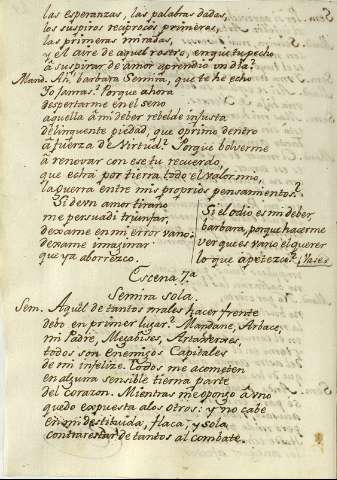 las esperanzas, las palabras dadas,
los suspiros reciprocos primeros,
las primeras miradas,
y el aire de aquel rostro, en que tu pecho
â suspirar de amor aprendio un dia?
Mand. Ah, barbara Semira, que te hé echo
Yo jamas? Porque ahora
despertarme en el seno
aquella â mi deber rebelde injusta
delinquente piedad, que oprimo dentro
â fuerza de Virtud? Porque bolverme
â renovar con ese tu recuerdo,
que echa por tierra todo el valor mio,
la guerra entre mis proprios pensamentos?
Si de un amor tirano
me persuadi triunfar,
dexame en mi error vano:
dexame ymaginar
que ya aborrezco.
Si el odio es mi deber,
barbara, porque hacerme
ver que es vano el querer
lo que apetezca? Vase
Escena 7a
Semira sola.
Sem. A quál de tantos males hacer frente
debo en primer lugar? Mandane, Arbace,
mi Padre, Megabises, Artaxerxes,
todos son enemigos Capitales
de mi infeliz. Todos me acometen
en alguna sensible tierna parte
del corazon. Mientras me opongo â uno
quedo expuesta a los otros: y no cabe
en mi destituida, flaca, y sola
contrarestar de tantos al combate.